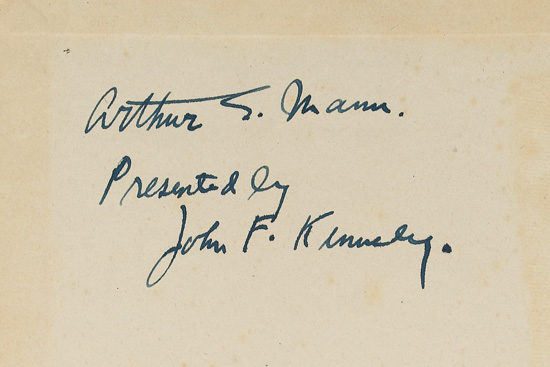 Arthur S. Mann.
Presented by
John F. Kennedy.